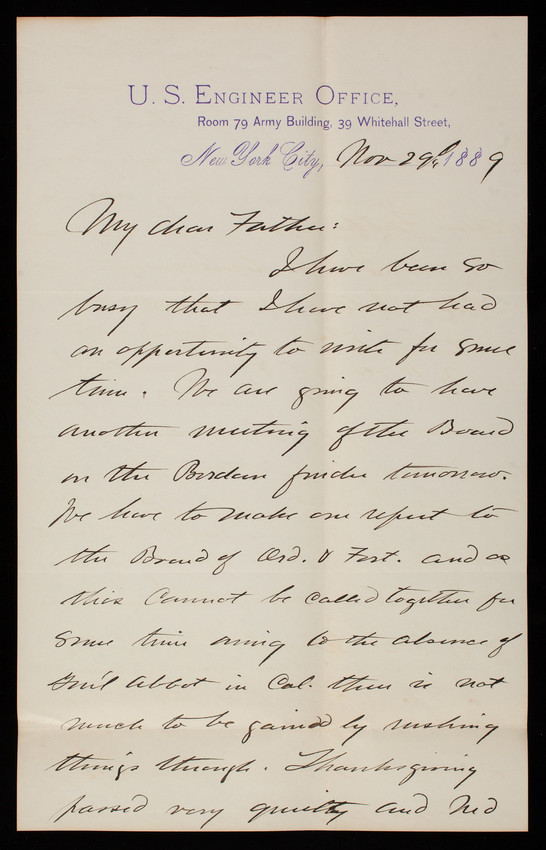 U. S. ENGINEER OFFICE,
Room 79 Army Building, 39 Whitehall Street,
New York City, Nov 29th, 1889
My dear Father:
I have been so
busy that I have not had
an opportunity to write for some
time. We are going to have
another meeting of the Board
on the Berdan finder tomorrow.
We have to make our report to
the Board of Ord. & Fort. and as
this cannot be called together for
some time owing to the absence of
Gen'l Abbot in Cal. there is not
much to be gained by rushing
things through. Thanksgiving
passed very quietly and Ned